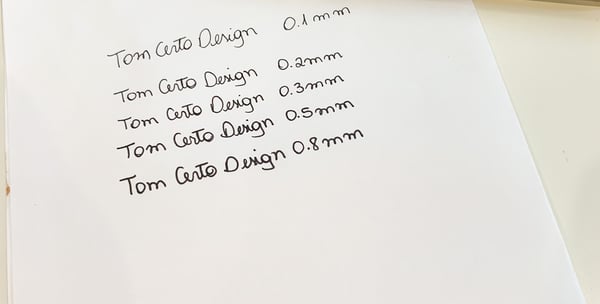 Tom Certo Design 0.1mm
Tom Certo Design 0.2mm
Tom Certo Design 0.3mm
Tom Certo Design 0.5mm
Tom Certo Design 0.8mm